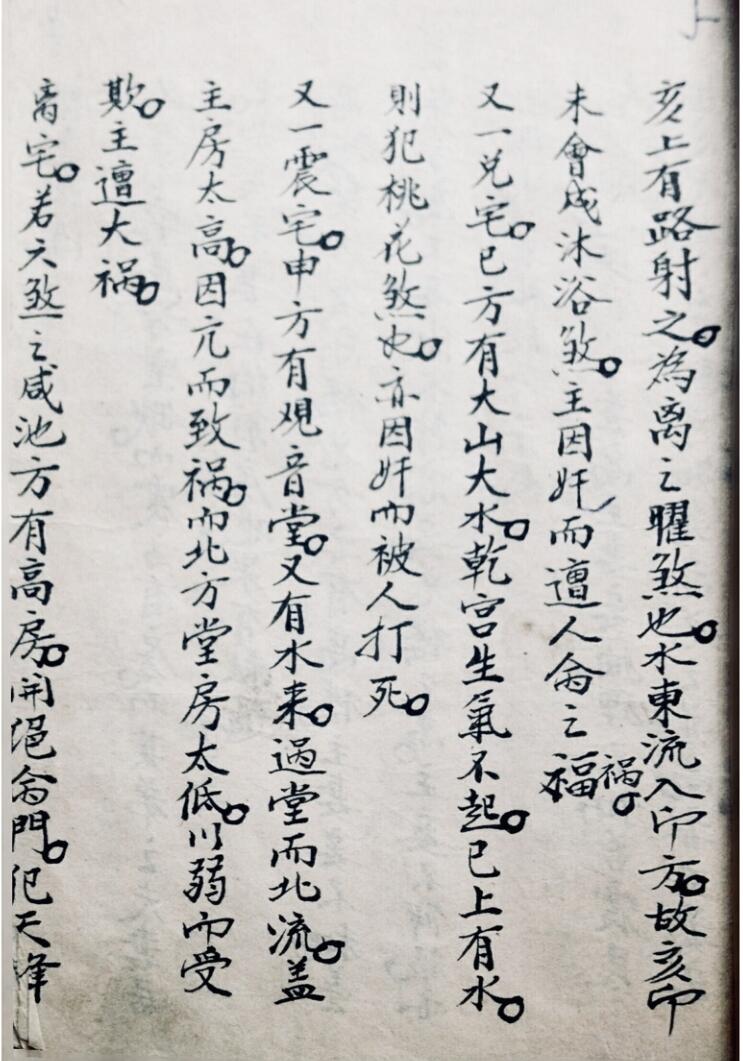 亥上有路射之。為离之曜煞也。水東流入卯方。故亥卯
未會成沐浴煞。主因奸而遭人命之禍。
又一兑宅。巳方有大山大水。乾宫生氣不起。巳上有水。
則犯桃花煞也。亦因奸而被人打死。
又一震宅。申方有观音堂。又有水来。過堂而北流。盖
主房太高。因亢而致禍。而北方堂房太低。以弱而受
欺。主遭大禍。
离宅。若六煞之咸池方有高房。開绝命門。犯天